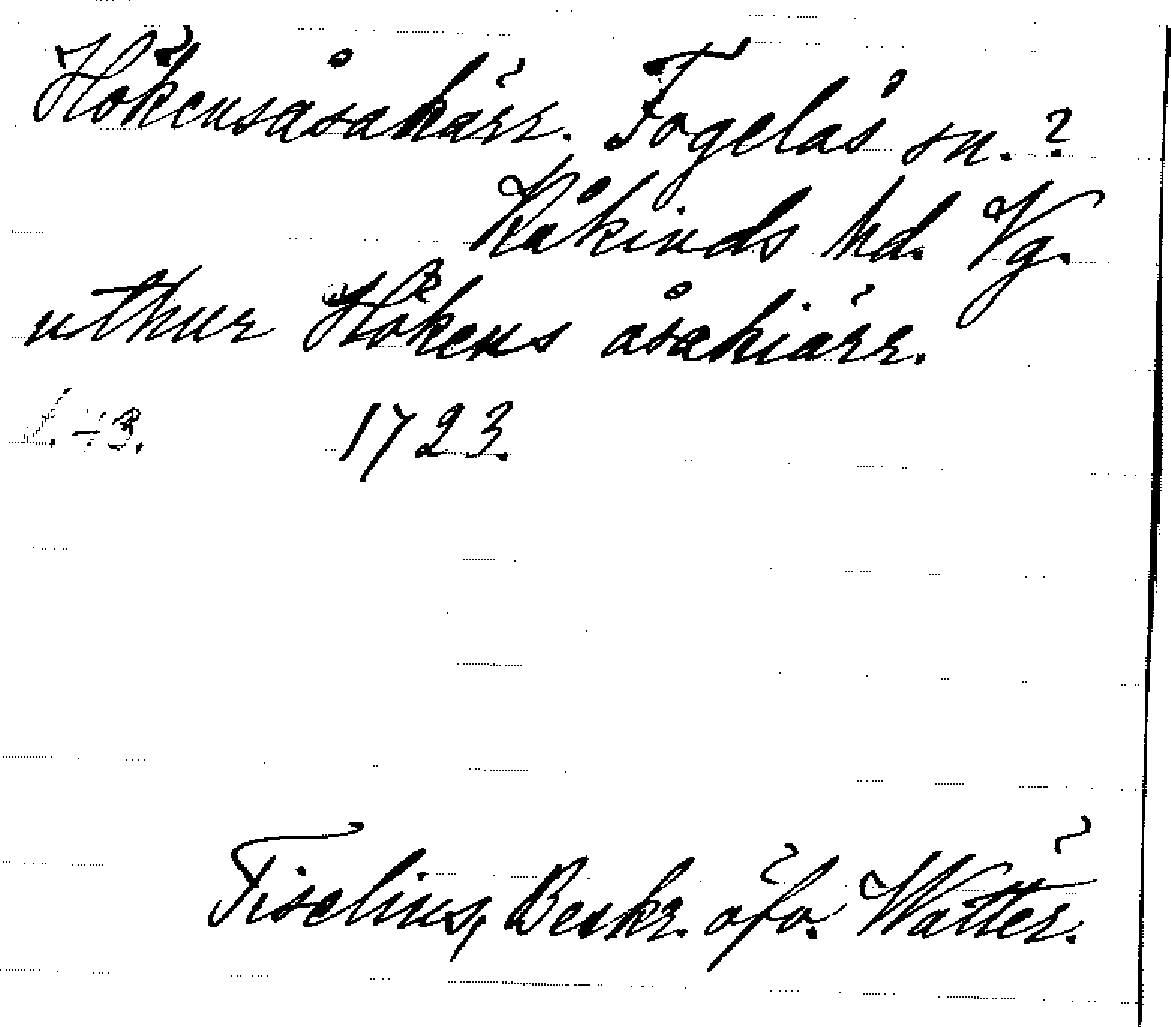 Hökensåsakärr. Fogelås sn. ?
Kåkinds hd. Vg.
uthur Hökens åsakiärr.
s. 43. 1723.
Tiselius, Beskr. öfv. Wätter.